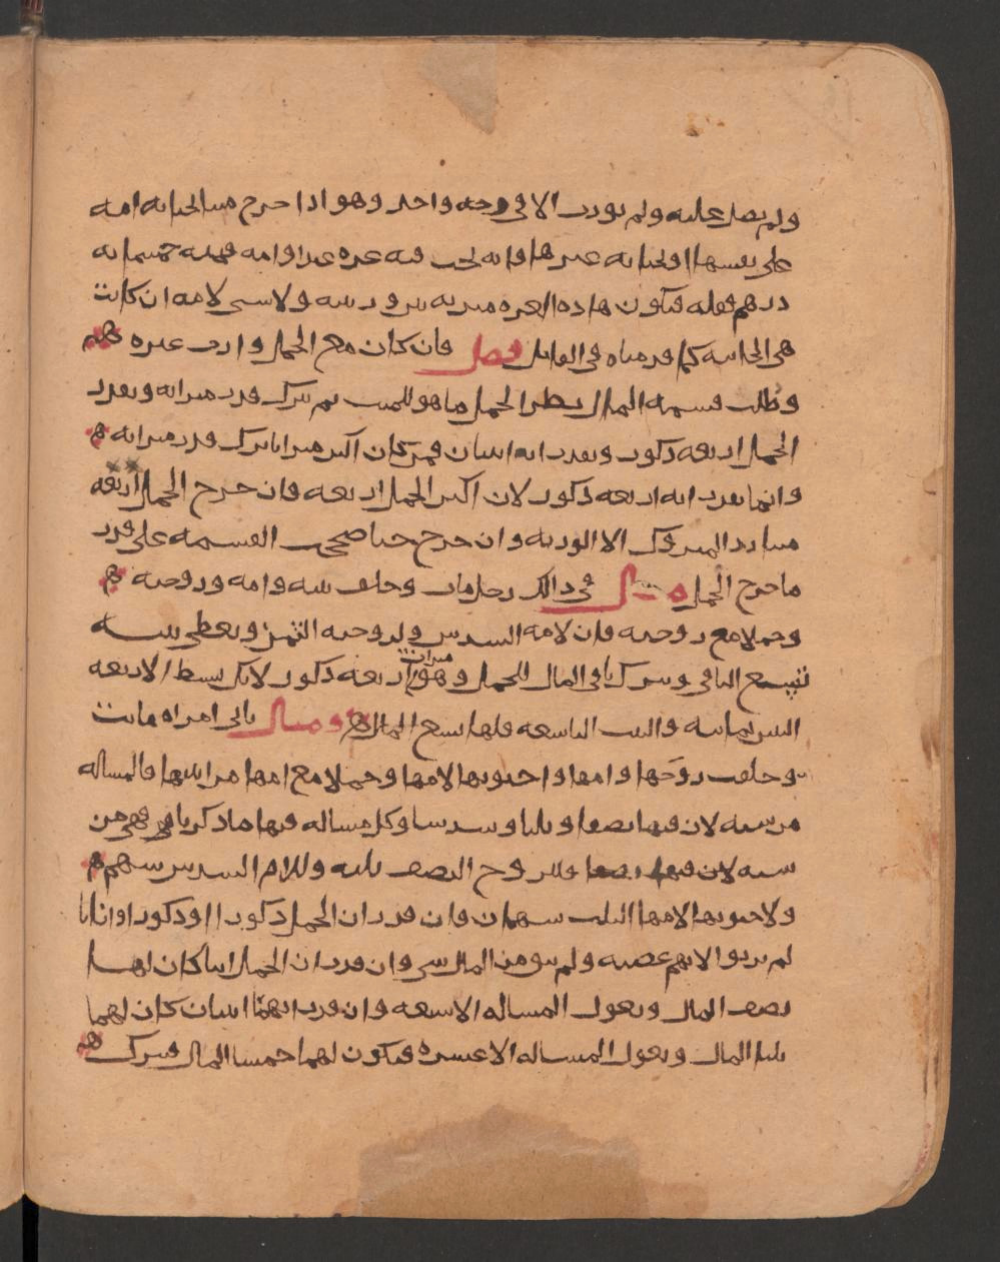 ولم يصل عليه ولم يورث الا في وجه واحد وهو اذا خرج ميتا لجنايه امه
على نفسها او لجنايه غيرها فانه يجب فيه غره عبد او امه قيمته خمسمايه
درهم فضه فتكون هاذه الغره ميراثه بين ورثته ولا شي لامه ان كانت
هي الجانيه كما قدمناه في القاتل فصل فان كان مع الحمل وارث غيره
وطلب قسمه المال نظر الحمل ما هو للميت ثم يترك قدر ميراثه ويقدر
الحمل اربعه ذكور ويقدر انه اناث فمن كان اكثر ميراثا ترك قدر ميراثه
وانما يقدر انه اربعه ذكور لان اكثر الحمل اربعه فان خرج الحمل اربعه
ميتا رد المتروك الا الورثه وان خرج حيا صحت القسمه على قدر
ما خرج الحمل مثال في ذالك رجل مات وخلف بنته وامه وزوجته
وحملا مع زوجته فان لامه السدس ولزوجته الثمن ويعطي بنته
تسع الباقي ويترك باقي المال للحمل وهو ميراث اربعه ذكور لانك تبسط الاربعه
البنين ثمانيه والبنت التاسعه فلها تسع المال ومثال ثاني امراه ماتت
وخلفت زوجها وامها واخويها لامها وحملا مع امها من ابيها فالمساله
من سته لان فيها نصفا وثلثا وسدسا وكل مساله فيها ما ذكرنا فهي من
سته لان فيها نصفا فللزوج النصف ثلثه وللام السدس سهم
ولاخويها لامها الثلث سهمان فان قدر ان الحمل ذكورا او ذكورا واناثا
لم يرثوا لانهم عصبه ولم يبق من المال شي وان قدر ان الحمل انثا كان لها
نصف المال وتعول المساله الا تسعه وان قدر انهما انثيان كان لهما
ثلثا المال وتعول المساله الا عشره فيكون لهما خمسا المال فيترك